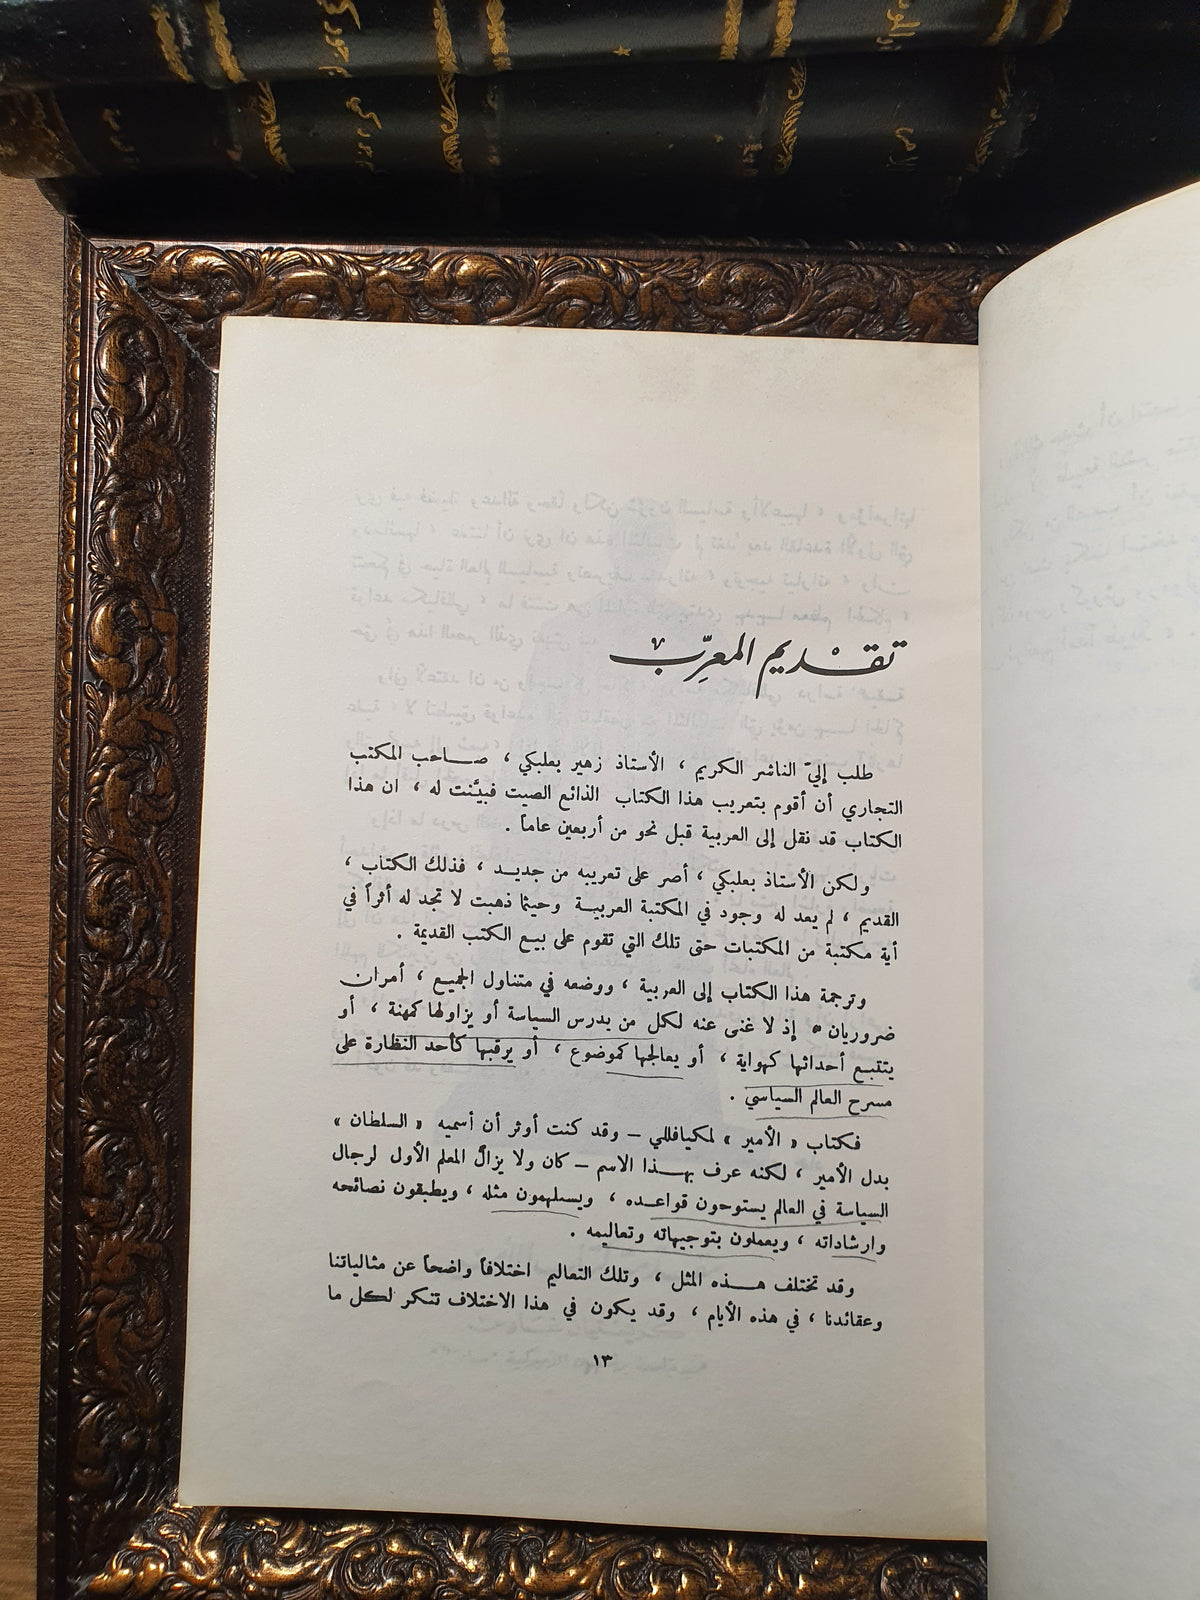 تقديم المعرِّب
طلب إليّ الناشر الكريم ، الأستاذ زهير بعلبكي ، صاحب المكتب
التجاري أن أقوم بتعريب هذا الكتاب الذائع الصيت فبيَّنت له ، ان هذا
الكتاب قد نقل إلى العربية قبل نحو من أربعين عاماً .
ولكن الأستاذ بعلبكي ، أصر على تعريبه من جديد ، فذلك الكتاب ،
القديم ، لم يعد له وجود في المكتبة العربية وحيثما ذهبت لا تجد له أثراً في
أية مكتبة من المكتبات حتى تلك التي تقوم على بيع الكتب القديمة .
وترجمة هذا الكتاب إلى العربية ، ووضعه في متناول الجميع ، أمران
ضروريان . إذ لا غنى عنه لكل من يدرس السياسة أو يزاولها كمهنة ، أو
يتتبع أحداثها كهواية ، أو يعالجها كموضوع ، أو يرقبها كأحد النظارة على
مسرح العالم السياسي .
فكتاب « الأمير » لمكيافللي – وقد كنت أوثر أن أسميه « السلطان »
بدل الأمير ، لكنه عرف بهذا الاسم – كان ولا يزال المعلم الأول لرجال
السياسة في العالم يستوحون قواعده ، ويستلهمون مثله ، ويطبقون نصائحه
وارشاداته ، ويعملون بتوجيهاته وتعاليمه .
وقد تختلف هذه المثل ، وتلك التعاليم اختلافاً واضحاً عن مثالياتنا
وعقائدنا ، في هذه الأيام ، وقد يكون في هذا الاختلاف تنكر لكل ما
١٣